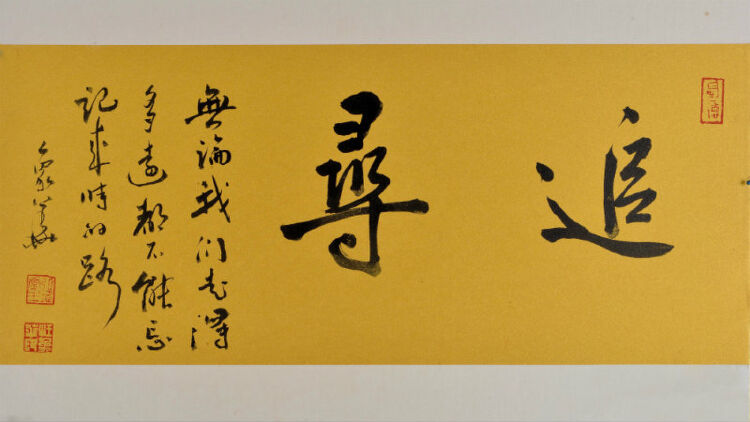 追尋
無論我們走得
多遠都不能忘
記來時的路